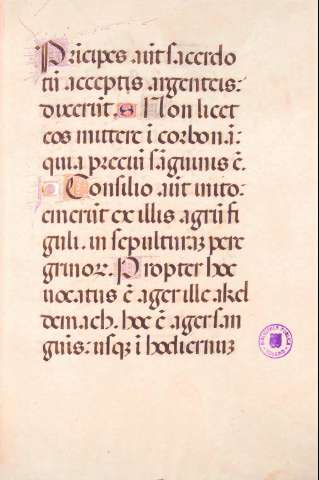 Prĩcipes aũt sacerdo
tũ acceptis argenteis:
dixerũt. Non licet
eos mittere ĩ corbonã:
quia preciũ sãguinis ẽ.
Consilio aũt inito:
emerũt ex illis agrũ fi
guli. in sepulturaꝫ pere
grinoꝝ. Propter hoc
uocatus ẽ ager ille akel
demach. hoc ẽ ager san
guis: usqꝫ ĩ hodiernuꝫ
BIBLIOTECA PUBLICA
TOLEDO